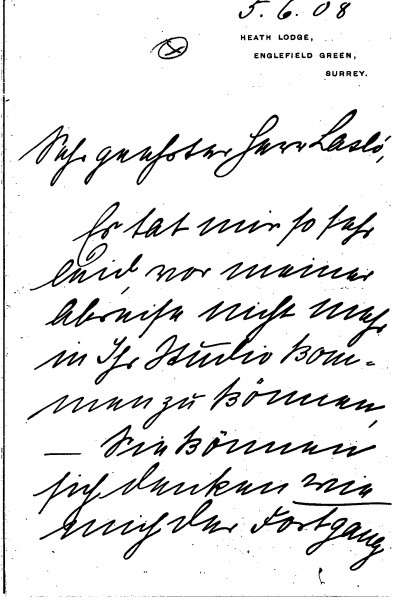 5.6.08
HEATH LODGE,
ENGLEFIELD GREEN,
SURREY.
Sehr geehrter Herr Lásló,
Es tat mir so sehr
leid, vor meiner
Abreise nicht mehr
in Ihr Studio kom-
men zu können,
— Sie können
sich denken wie
mich der Fortgang